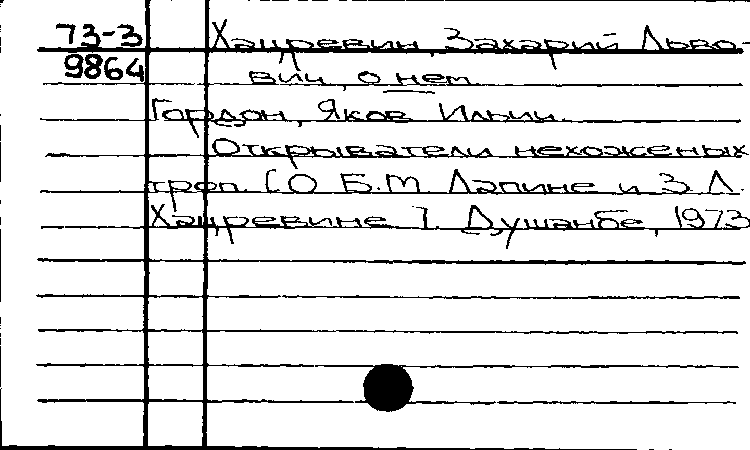 73-3 Хацревин, Захарий Льво-
9864 вич, о нем.
Гордон, Яков Ильич.
Открыватели нехоженых
троп. [О Б.М. Лапине и З.Л.
Хацревине]. Душанбе, 1973